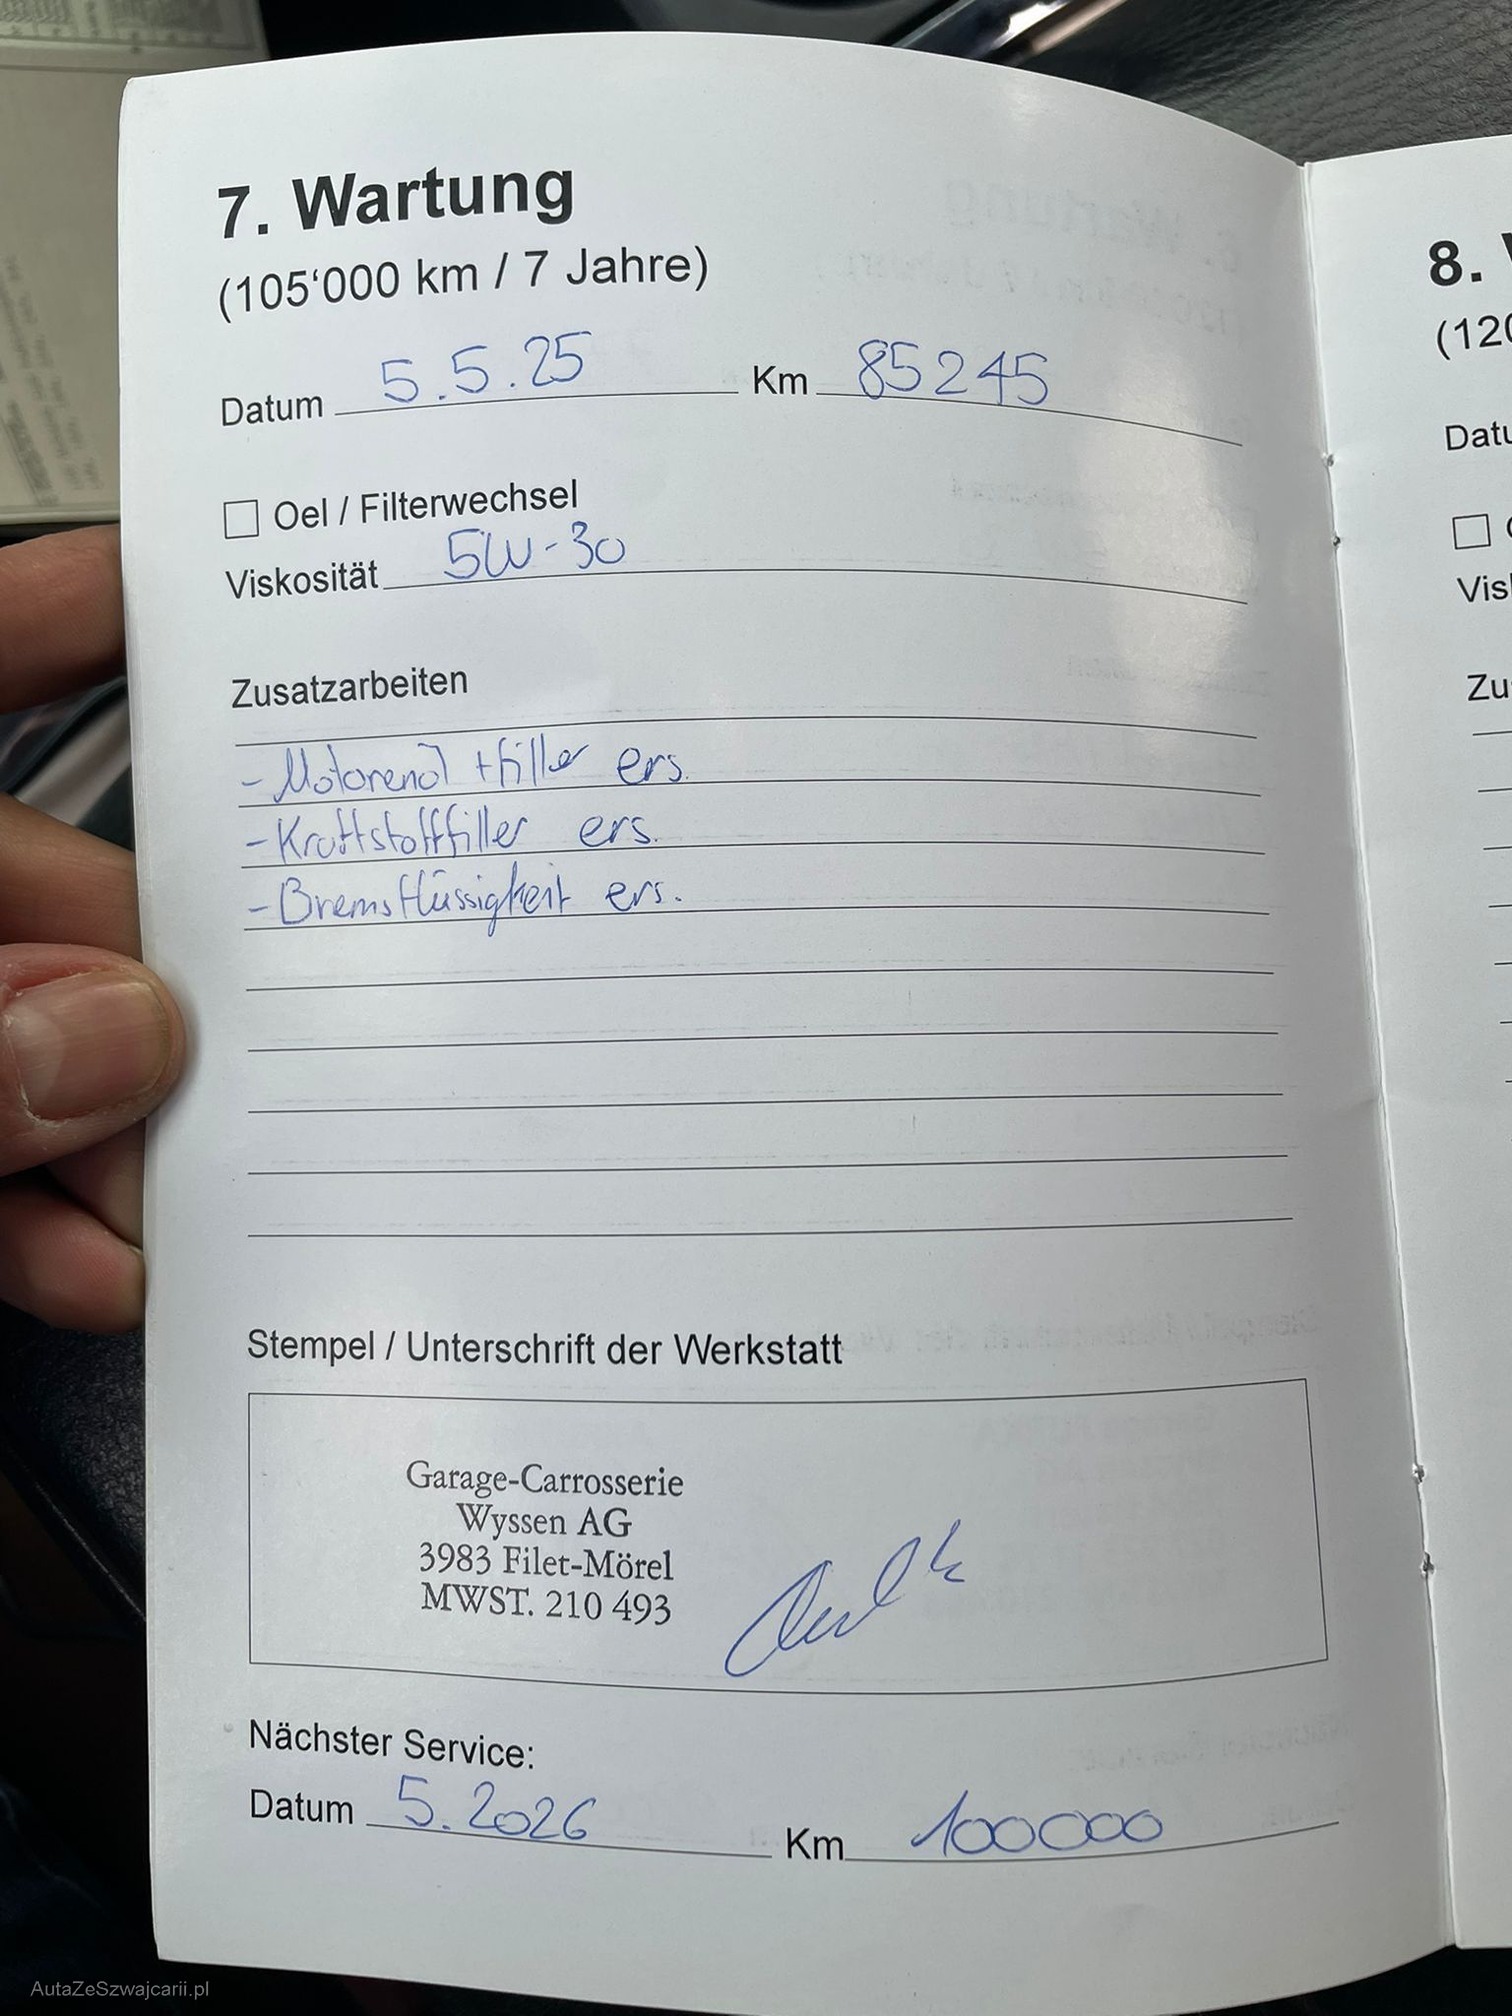 7. Wartung
(105'000 km / 7 Jahre)
Datum 5.5.25 Km 85245
Oel / Filterwechsel
Viskosität 5W-30
Zusatzarbeiten
- Motorenöl + filter ers.
- Kraftstofffilter ers.
- Bremsflüssigkeit ers.
Stempel / Unterschrift der Werkstatt
Garage-Carrosserie
Wyssen AG
3983 Filet-Mörel
MWST. 210 493
Nächster Service:
Datum 5.2026 Km 100000
8.
(120
Datu
Vis
Zu
AutaZeSzwajcarii.pl